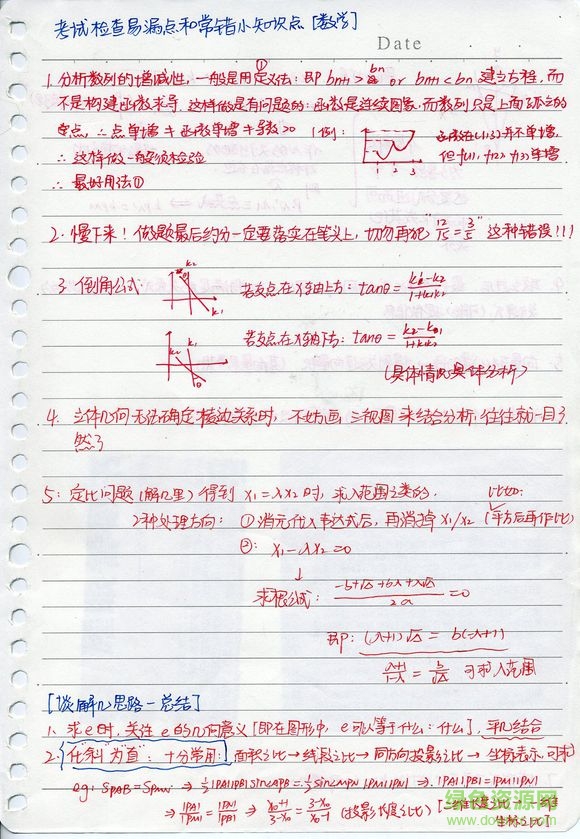 考试检查易漏点和常错小知识点 [数学]
Date
1. 分析数列的增减性, 一般是用定义法: 即 bn+1 > bn or bn+1 < bn 建立方程, 而
不是构建函数求导, 这样做是有问题的: 函数是连续图象, 而数列只是上面孤立的
点, ∴ 点单增 ≠ 函数单增 ≠ 导数>0 例:
函数在(1,3)并不单增,
但 f(1), f(2), f(3) 单增
1 2 3
∴ 这样做一定须检验
∴ 最好用法①
2. 慢下来! 做题最后约分一定要落实在笔头上, 切勿再犯 "12/15 = 3/5" 这种错误!!!
3. 倒角公式: 若交点在X轴上方: tanθ =
k1
若交点在X轴下方: tanθ =
(具体情况具体分析)
4. 立体几何无法确定棱边关系时, 不妨画三视图来结合分析, 往往就一目了
然了
5: 定比问题(解几里) 得到 x1 = λx2 时, 求λ范围之类的.
2种处理方向: ①消元代入表达式后, 再消掉 x1/x2 (平方后再作比)
②: x1 - λx2 = 0
↓
求根公式: (-b+√Δ+bλ+λ√Δ)/2a = 0
即: (λ+1)√Δ = b(-λ+1)
(λ+1)/(1-λ) = b/√Δ 可求λ范围
[谈解几思路 — 总结]
1. 求e时, 关注e的几何意义 [即在图形中, e可以等于什么: 什么], 平几结合
2. 化斜为直: 十分常用: 面积之比 → 线段之比 → 同方向投影之比 → 坐标表示, 可求
⇒ |PA|/|PM| = |PN|/|PB| ⇒ (x0+1)/(3-x0) = (3-x0)/(x0-1) (投影长度之比)
绿色资源网